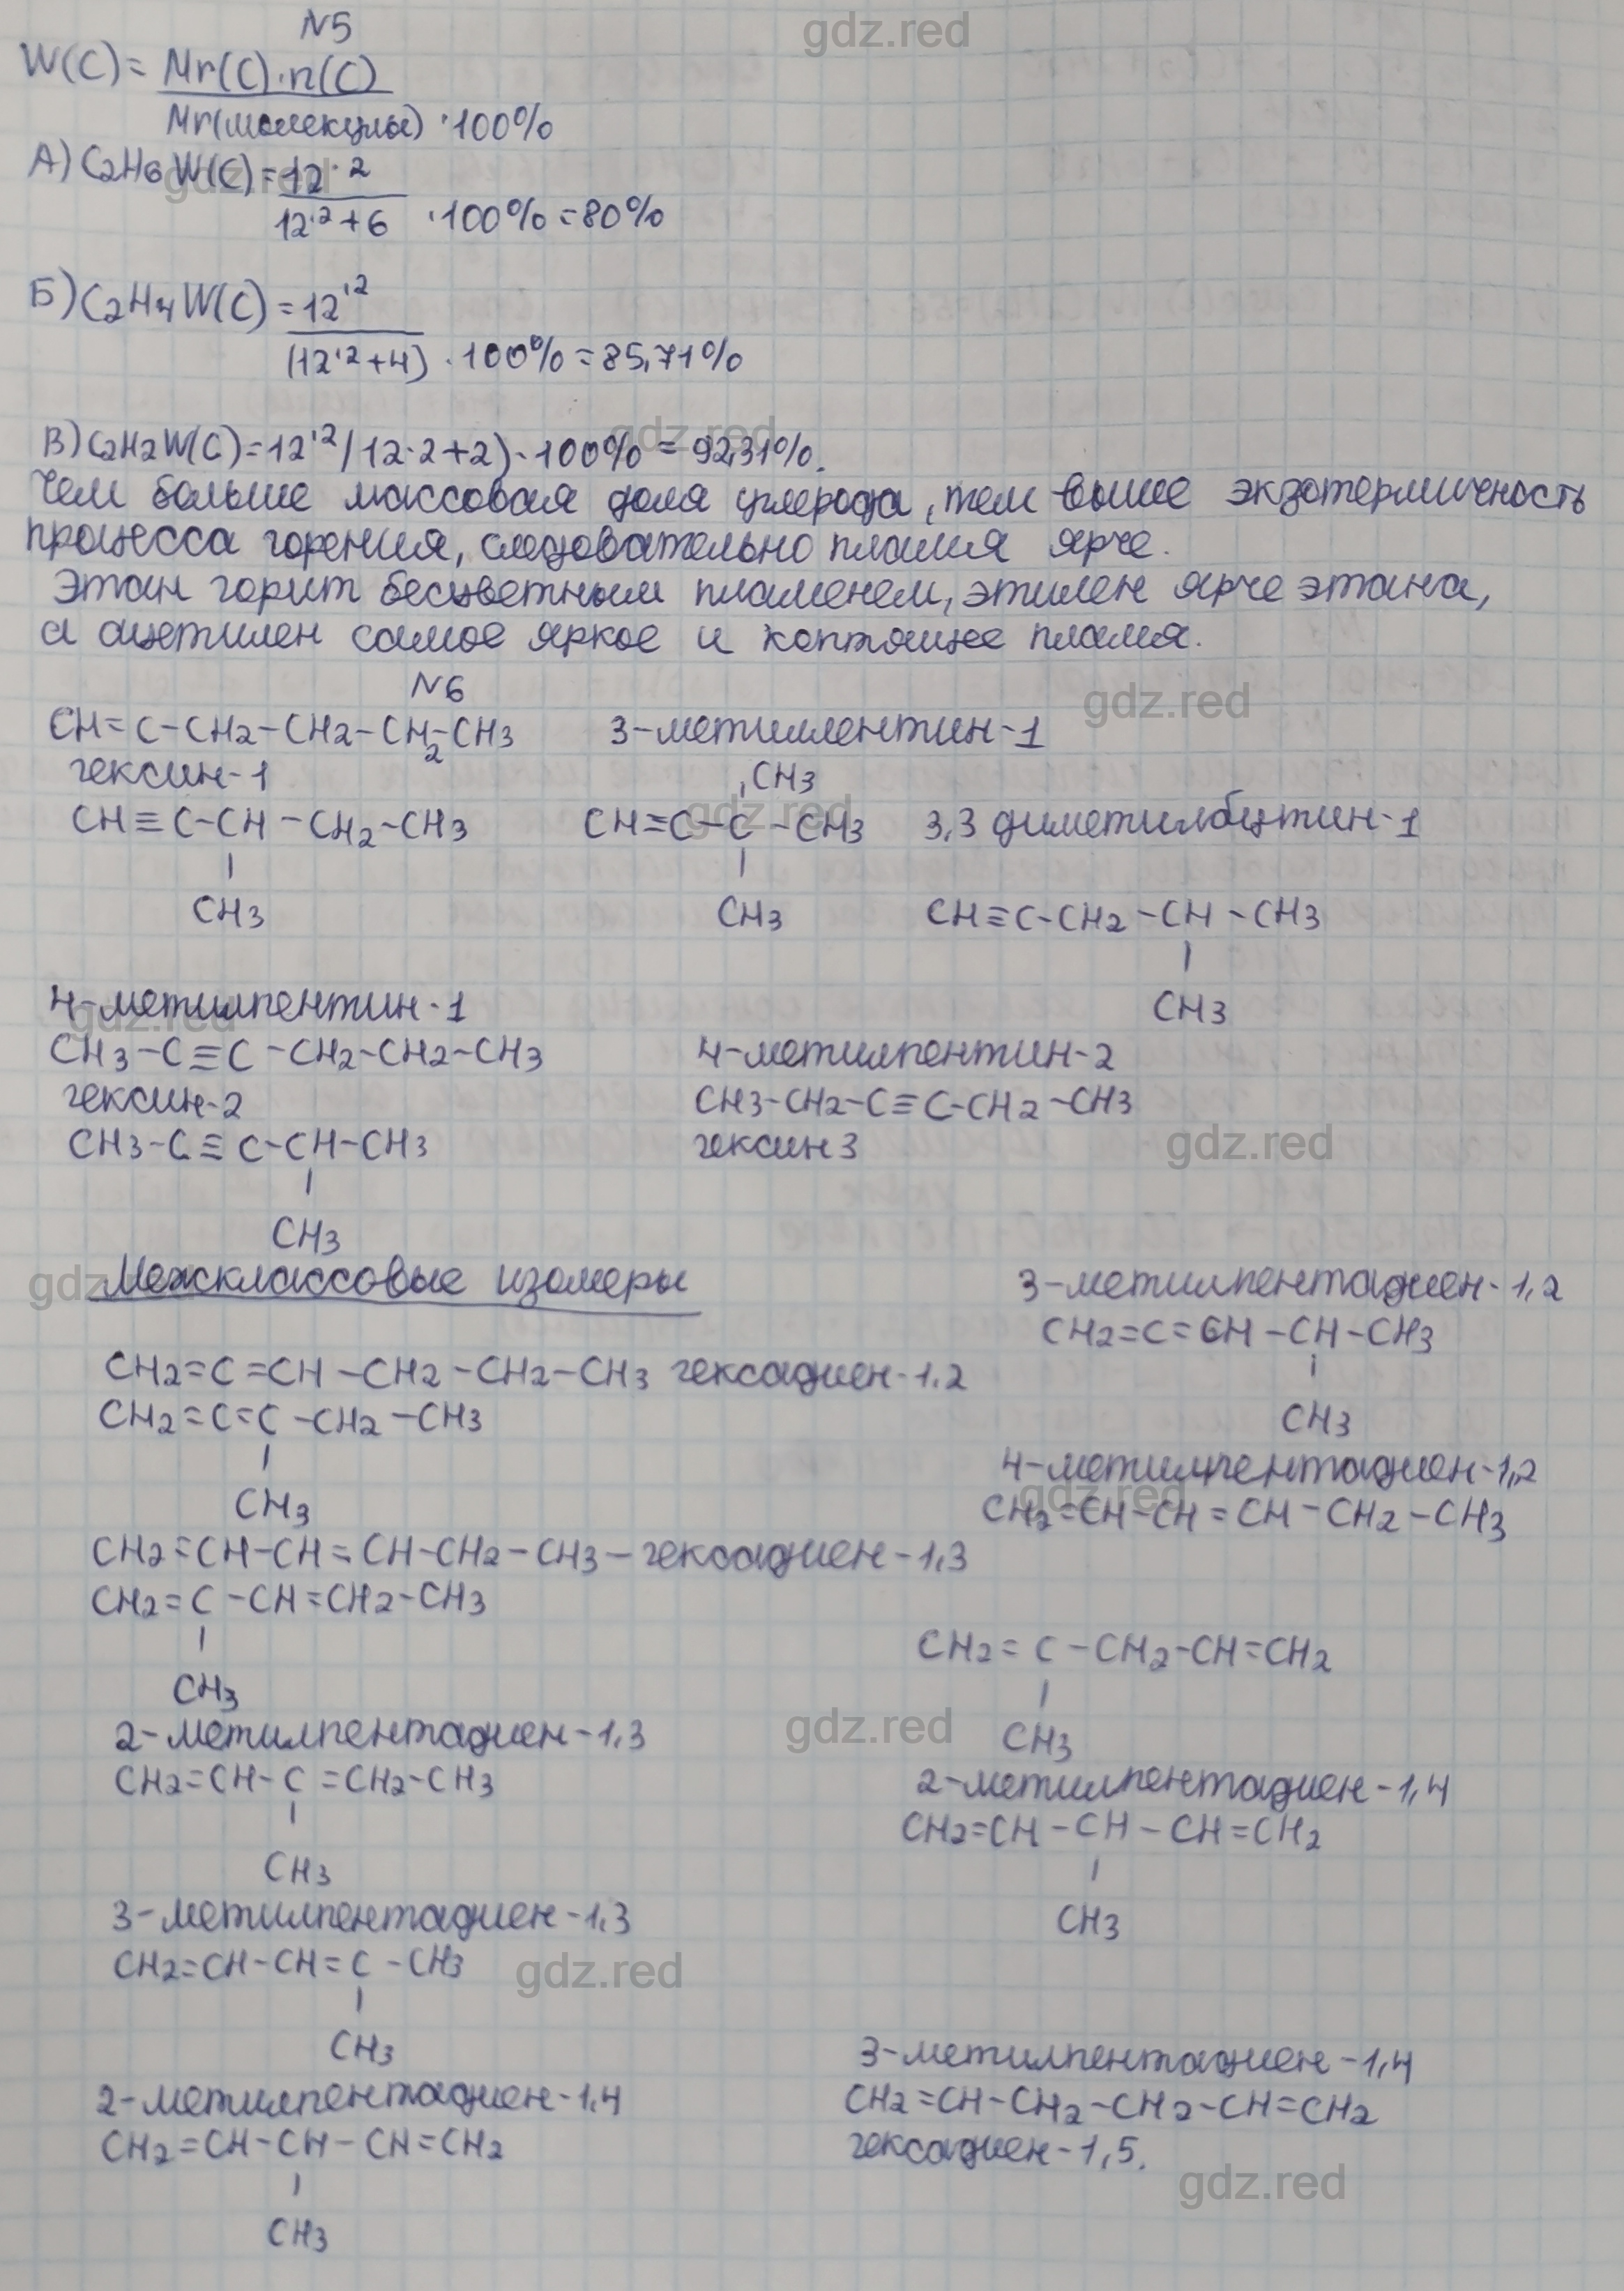 N5
W(C)= Mr(C)·n(C)
Mr(молекулы) ·100%
А) C2H6 W(C)= 12·2
12·2+6 ·100% =80%
Б) C2H4 W(C) = 12·2
(12·2+4) ·100% =85,71%
В) C2H2 W(C)=12·2/12·2+2)·100% = 92,31%.
Чем больше массовая доля углерода, тем выше экзотермичность
процесса горения, следовательно пламя ярче.
Этан горит бесцветным пламенем, этилен ярче этана,
а ацетилен самое яркое и коптящее пламя.
N6
CH≡C-CH2-CH2-CH2-CH3
гексин-1
CH≡C-CH-CH2-CH3
CH3
3-метилпентин-1
CH3
CH≡C-C-CH3
CH3
3,3 диметилбутин-1
CH≡C-CH2-CH-CH3
CH3
4-метилпентин-1
CH3-C≡C-CH2-CH2-CH3
гексин-2
CH3-C≡C-CH-CH3
CH3
4-метилпентин-2
CH3-CH2-C≡C-CH2-CH3
гексин 3
Межклассовые изомеры
CH2=C=CH-CH2-CH2-CH3 гексадиен-1,2
CH2=C=C-CH2-CH3
CH3
3-метилпентадиен-1,2
CH2=C=CH-CH-CH3
CH3
4-метилпентадиен-1,2
CH2=CH-CH=CH-CH2-CH3
CH2=CH-CH=CH-CH2-CH3-гексадиен-1,3
CH2=C-CH=CH2-CH3
CH3
2-метилпентадиен-1,3
CH2=CH-C=CH2-CH3
CH3
3-метилпентадиен-1,3
CH2=CH-CH=C-CH3
CH3
2-метилпентадиен-1,4
CH2=CH-CH-CH=CH2
CH3
CH2=C-CH2-CH=CH2
CH3
2-метилпентадиен-1,4
CH2=CH-CH-CH=CH2
CH3
3-метилпентадиен-1,4
CH2=CH-CH2-CH2-CH=CH2
гексадиен-1,5.
gdz.red
gdz.red
gdz.red
gdz.red
gdz.red
gdz.red
gdz.red
gdz.red
gdz.red
gdz.red
gdz.red
gdz.red